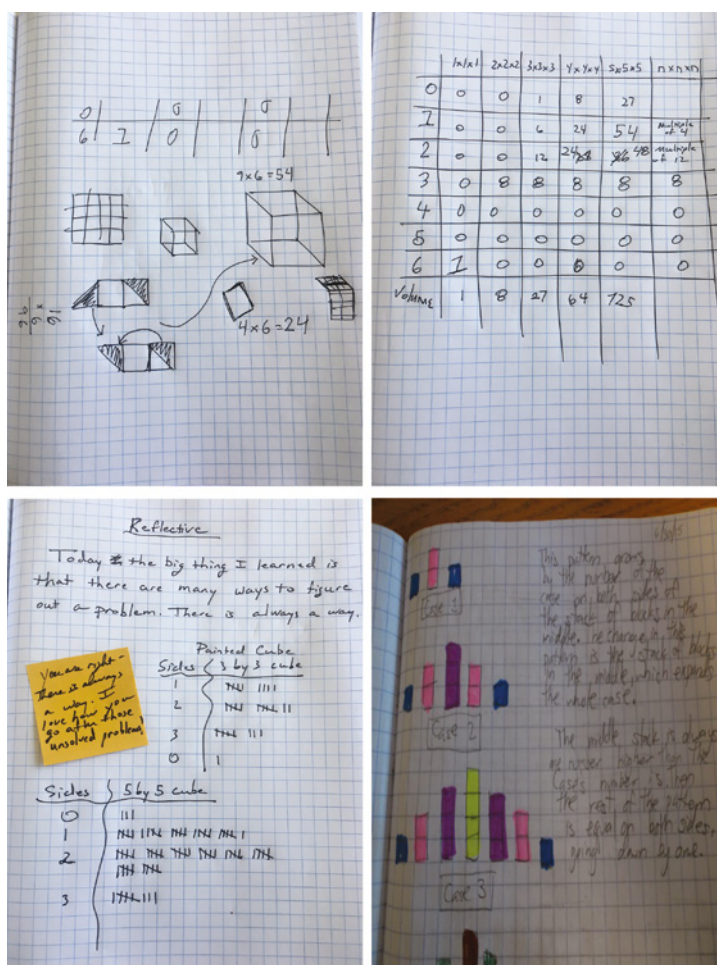 0 0 0
6 1 0 0
9x6=54
4x6=24
1x1x1 2x2x2 3x3x3 4x4x4 5x5x5 nxnxn
0 0 0 1 8 27
1 0 0 6 24 54 multiple of 4
2 0 0 12 24 48 multiple of 12
3 0 8 8 8 8 8
4 0 0 0 0 0 0
5 0 0 0 0 0 0
6 1 0 0 0 0 0
Volume 1 8 27 64 125
Reflective
Today the big thing I learned is
that there are many ways to figure
out a problem. There is always a way.
You are right-
there is always
a way. I
love how you
go after those
unsolved problems!
Painted Cube
Sides 3 by 3 cube
1
2
3
0
Sides 5 by 5 cube
0
1
2
3
This pattern
by the number of the
case on both sides of
the stack of blocks in the
middle.
pattern is the stack of blocks
in the middle, which expands
the whole case.
Case 2
The middle stack is always
one number higher than the
case's number is then
the rest of the pattern
is equal on both sides,
going down by one.
Case 3